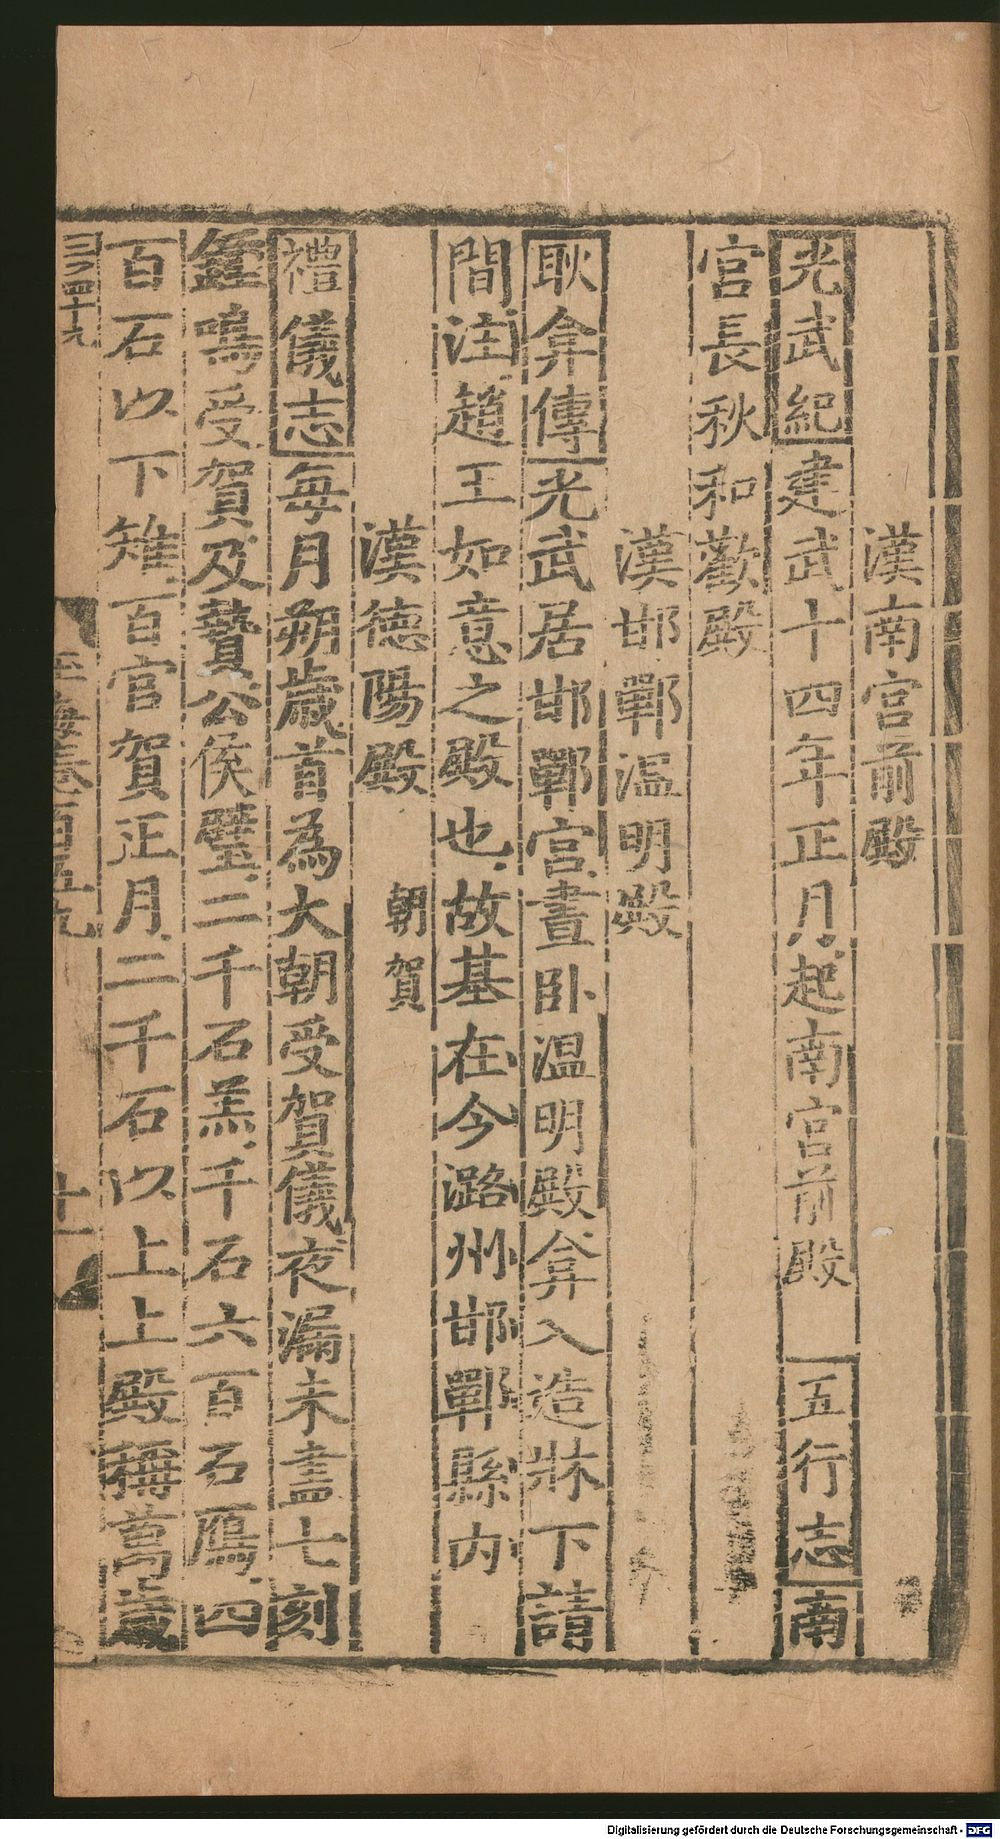 漢南宫前殿
光武紀建武十四年正月起南宫前殿 五行志南
宫長秋和歡殿
漢邯鄲温明殿
耿弇傳光武居邯鄲宫晝卧温明殿弇入造牀下請
間注趙王如意之殿也故基在今潞州邯鄲縣内
漢德陽殿 朝賀
禮儀志每月朔歲首為大朝受賀儀夜漏未盡七刻
鍾鳴受賀及贄公侯璧二千石羔千石六百石鴈四
百石以下雉百官賀正月二千石以上上殿稱萬歲
玉海卷百五九
十一
Digitalisierung gefördert durch die Deutsche Forschungsgemeinschaft - DFG